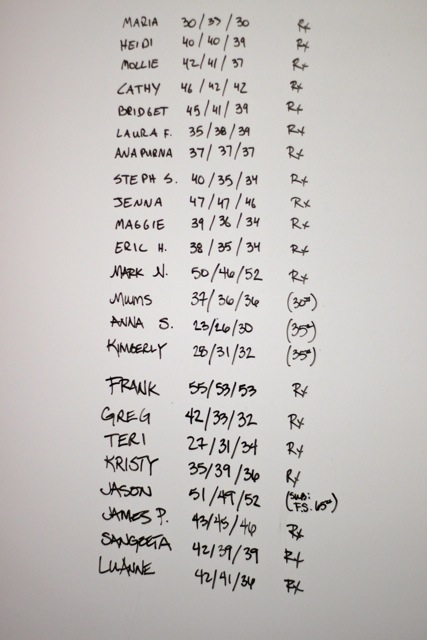 MARIA 30/33/30 Rx
HEIDI 40/40/39 Rx
MOLLIE 42/41/37 Rx
CATHY 46/42/42 Rx
BRIDGET 45/41/39 Rx
LAURA F. 35/38/39 Rx
ANAPURNA 37/37/37 Rx
STEPH S. 40/35/34 Rx
JENNA 47/47/46 Rx
MAGGIE 39/36/34 Rx
ERIC H. 38/35/34 Rx
MARK N. 50/46/52 Rx
MIUMS 37/36/36 (30#)
ANNA S. 23/26/30 (35#)
KIMBERLY 28/31/32 (35#)
FRANK 55/53/53 Rx
GREG 42/33/32 Rx
TERI 27/31/34 Rx
KRISTY 35/39/36 Rx
JASON 51/49/52 (SUB: F.S. 65#)
JAMES P. 43/45/46 Rx
SANGEETA 42/39/39 Rx
LUANNE 42/41/36 Rx